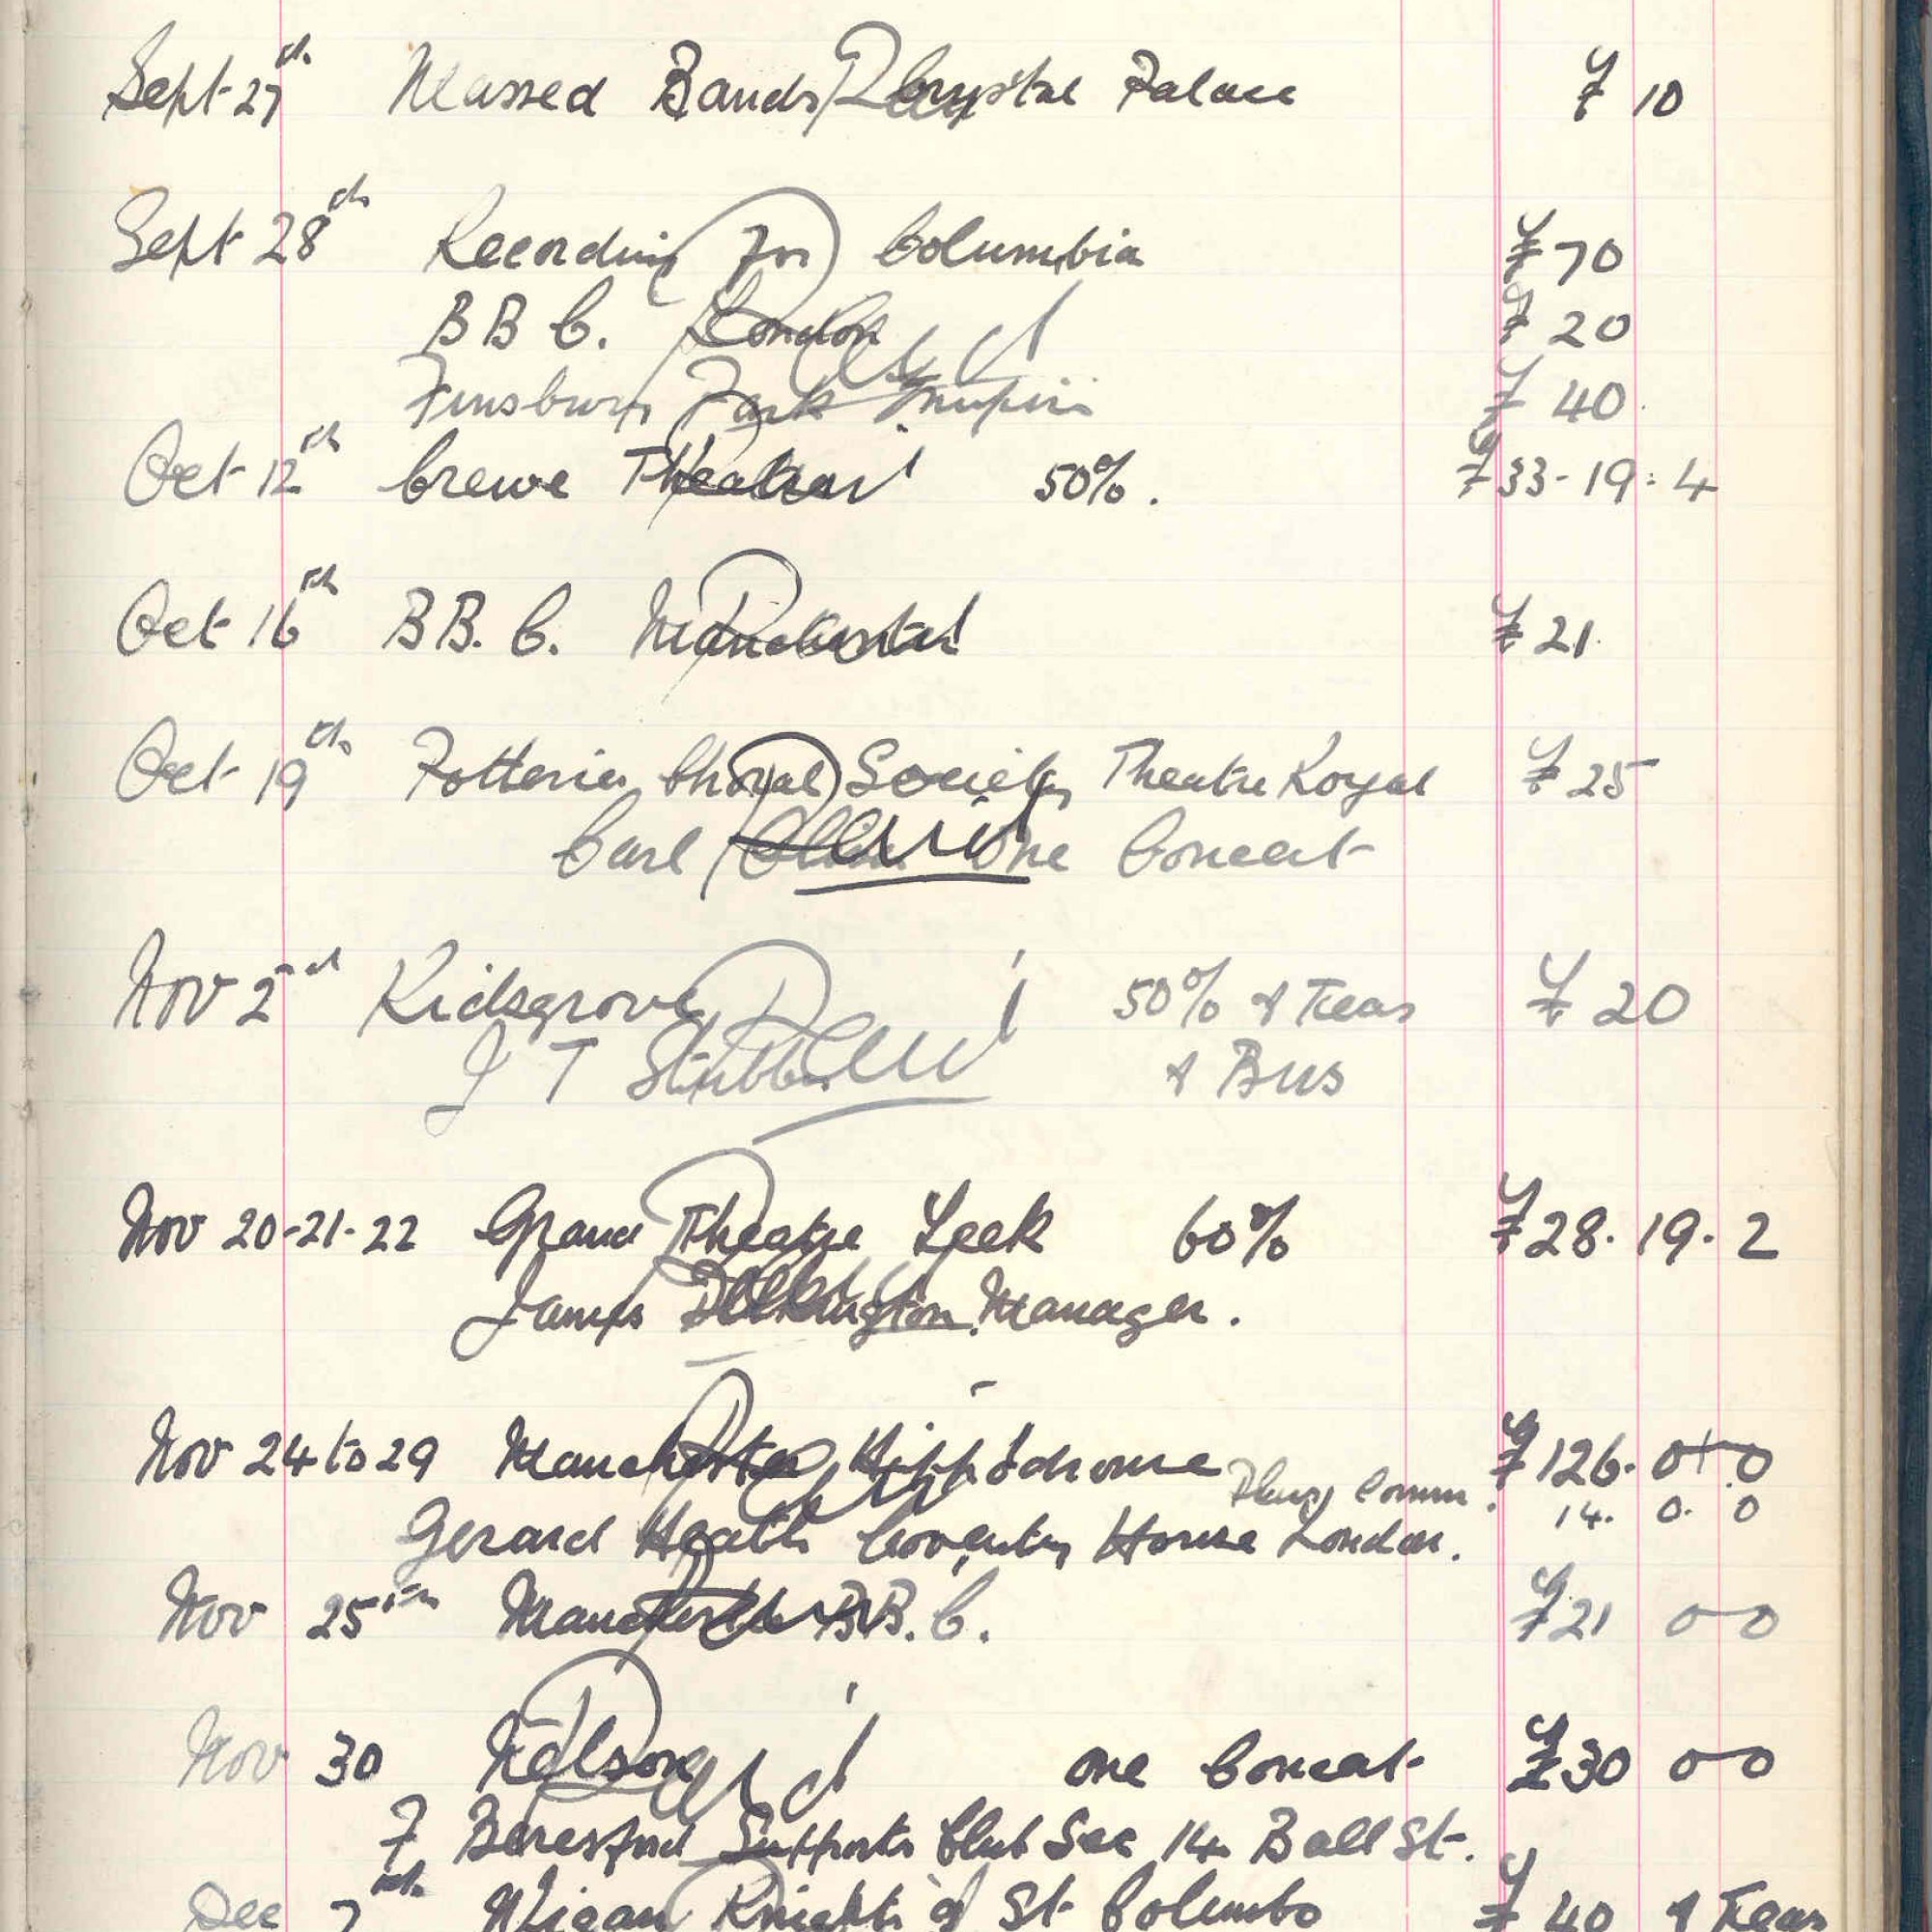 Sept 27th Massed Bands Crystal Palace £ 10
Sept 28th Recording For Columbia £70
B B C. London £ 20
Finsbury Park Empire £ 40
Oct 12th Crewe Theatre 50%. £33-19:4
Oct 16th B B. C. Manchester £ 21.
Oct 19th Potteries Choral Society Theatre Royal £ 25
Carl One Concert
Nov 2nd Kidsgrove 50% & Teas £ 20
J T Stubbs & Bus
Paid
Nov 20-21-22 Grand Theatre Leek 60% £28. 19. 2
James Manager.
Nov 24 to 29 Manchester Hippodrome £126. 0 + 0
Plus Comm. 14. 0. 0
Gerard Heath Coventry House London.
Nov 25th Manchester B B. C. £21 0-0
Nov 30 Nelson Paid one Concert £30 0-0
F Beresford Supports Club Sec 14 Ball St.
Dec 7th Wigan Knights of St Columbo £ 40 & Teas